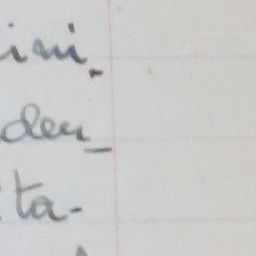 ini-
den-
ta-